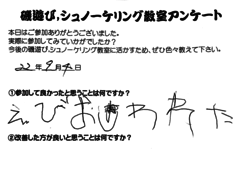 磯遊び,シュノーケリング教室アンケート
本日はご参加ありがとうございました。
実際に参加してみていかがでしたか?
今後の磯遊び,シュノーケリング教室に活かすため、ぜひ色々教えて下さい。
22年9月4日
①参加して良かったと思うことは何ですか?
えびおじわれた
②改善した方が良いと思うことは何ですか?